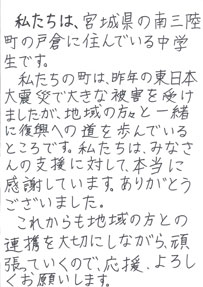 私たちは、宮城県の南三陸
町の戸倉に住んでいる中学
生です。
私たちの町は、昨年の東日本
大震災で大きな被害を受け
ましたが、地域の方々と一緒
に復興への道を歩んでいる
ところです。私たちは、みなさ
んの支援に対して、本当に
感謝しています。ありがとう
ございました。
これからも地域の方との
連携を大切にしながら、頑
張っていくので、応援、よろし
くお願いします。